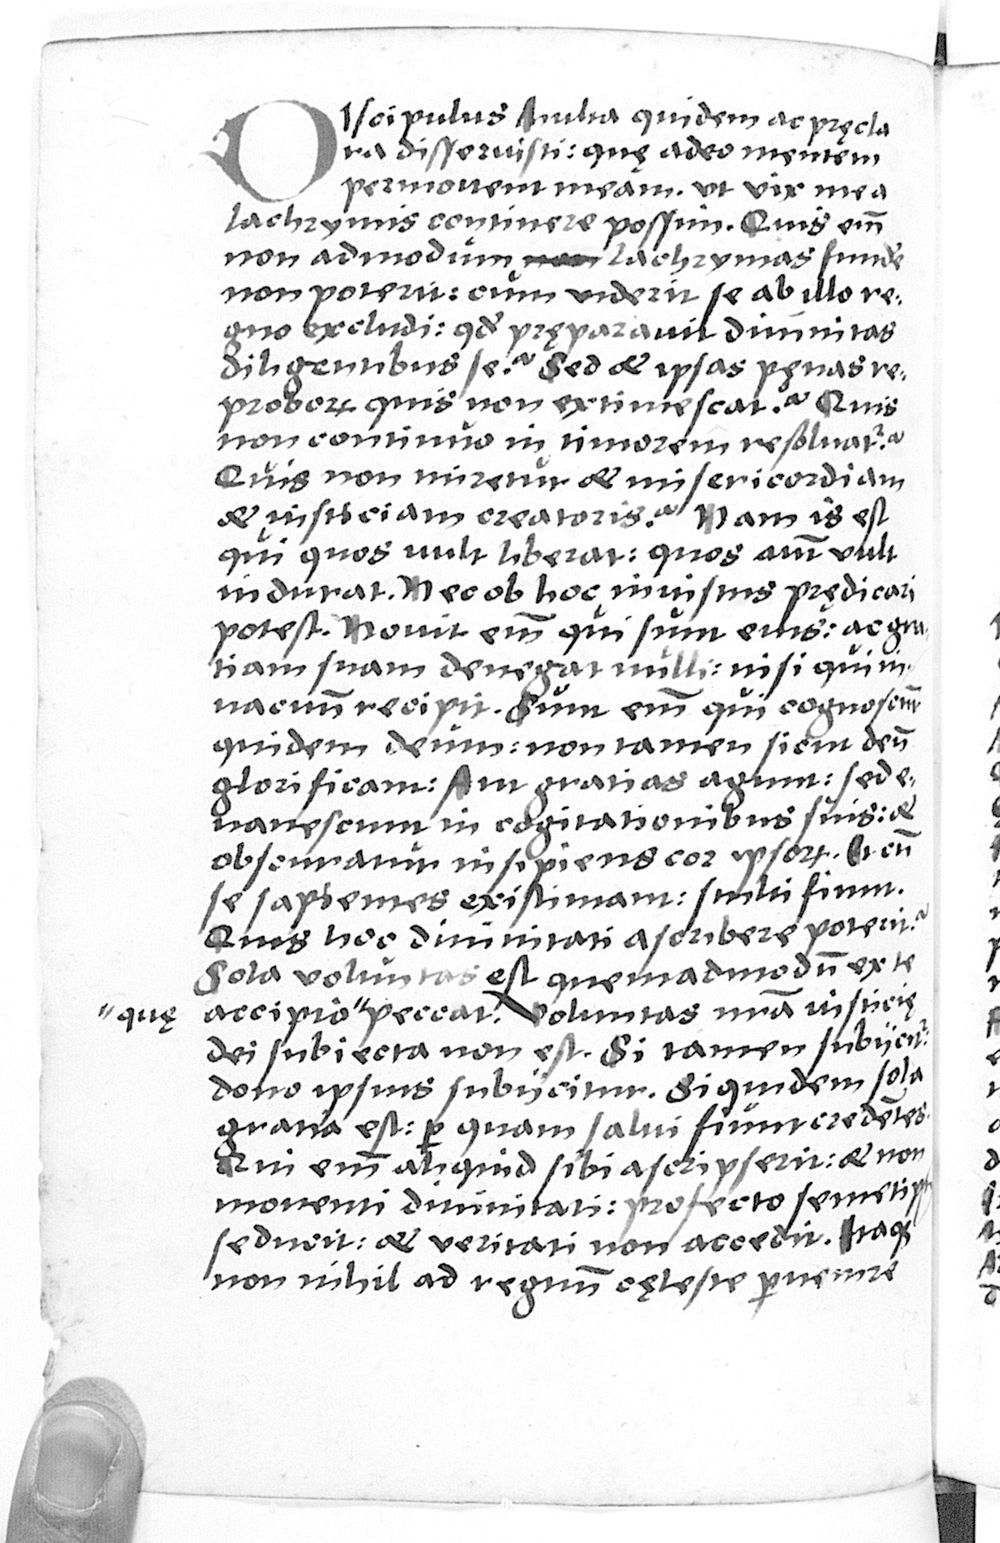 DIscipulus Multa quidem ac pręcla
ra disseruisti: quę adeo mentem
permouent meam. vt vix me a
lachrymis continere possim. Quis em̄
non admodum non lachrymas fundeꝛ
non poterit: cum viderit se ab illo re-
gno excludi: qđ pręparauit diuinitas
diligentibus se.? Sed & ipsas pęnas re-
proboꝝ quis non extimescat.? Quis
non continuo in timorem resoluat᷑.?
Quis non miretur & misericordiam
& iusticiam creatoris.? Nam is est
qui quos uult liberat: quos aut̄ vult
indurat. Nec ob hoc iniustus prędicari
potest. Nouit em̄ qui sunt eius: ac gra-
tiam suam denegat nulli: nisi qui in
uacuū recipit. Sunt em̄ qui cognoscūt
quidem deum: non tamen sicut deū
glorificant: Aut gratias agunt: sed e-
uanescunt in cogitationibus suis: &
obscuratur insipiens cor ipsoꝝ. Et cū
se sapientes existimant: stulti fiunt.
Quis hoc diuinitati ascribere poterit.?
Sola voluntas est quemadmodū ex te
"quę accipio" peccat. Voluntas nr̄a iusticię
dei subiecta non est. Si tamen subijcit᷑:
dono ipsius subijcitur. Siquidem sola
gratia est: ꝑ quam salui fiunt credētes.
Qui em̄ aliquid sibi ascripserit: & non
mouenti diuinitati: profecto semetipm̄
seducit: & veritati non accedit. Itaqꝫ
non nihil ad regnū cęleste ꝑuenire